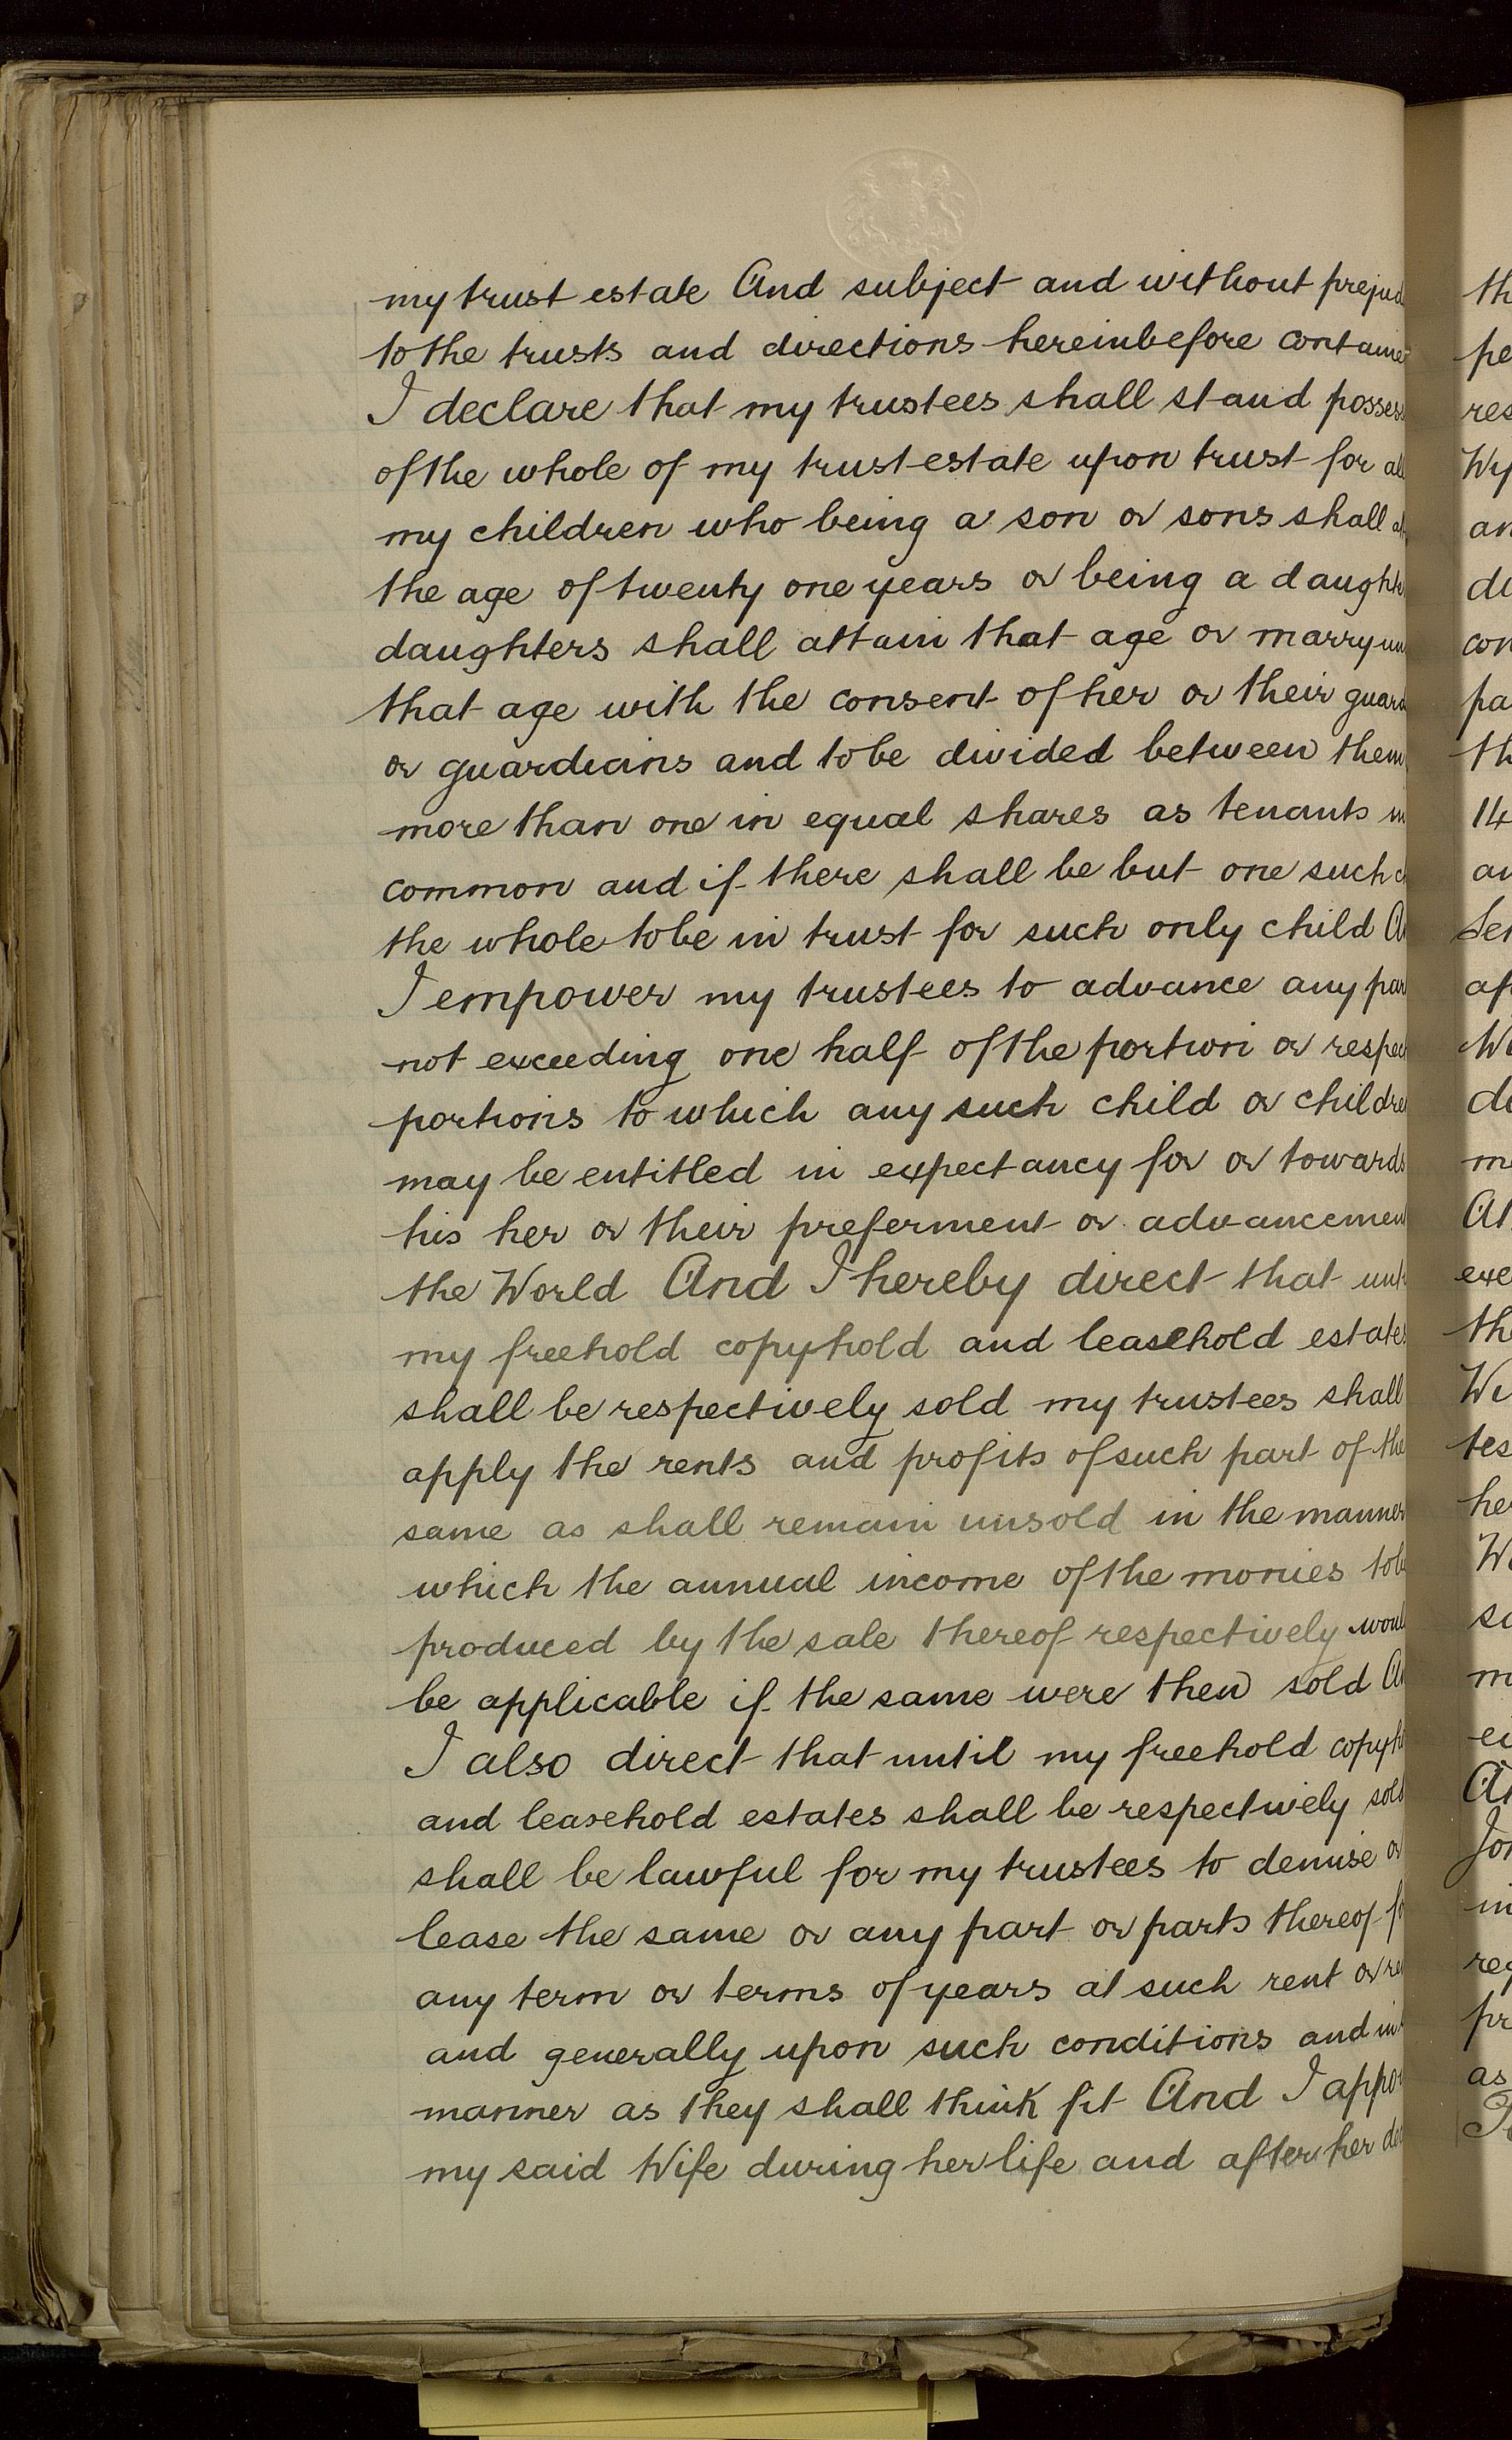 my trust estate And subject and without prejud
to the trusts and directions hereinbefore containe
I declare that my trustees shall stand possess
of the whole of my trust estate upon trust for all
my children who being a son or sons shall at
the age of twenty one years or being a daughte
daughters shall attain that age or marry un
that age with the consent of her or their guard
or guardians and to be divided between them
more than one in equal shares as tenants in
common and if there shall be but one such c
the whole to be in trust for such only child A
I empower my trustees to advance any par
not exceeding one half of the portion or respec
portions to which any such child or childre
may be entitled in expectancy for or towards
his her or their preferment or advancement
the World And I hereby direct that unt
my freehold copyhold and leasehold estates
shall be respectively sold my trustees shall
apply the rents and profits of such part of the
same as shall remain unsold in the manner
which the annual income of the monies to be
produced by the sale thereof respectively woul
be applicable if the same were then sold A
I also direct that until my freehold copyh
and leasehold estates shall be respectively sold
shall be lawful for my trustees to demise or
lease the same or any part or parts thereof fo
any term or terms of years at such rent or re
and generally upon such conditions and in
manner as they shall think fit And I appo
my said Wife during her life and after her de
th
pe
res
Wy
an
de
con
pa
th
14
an
Ser
af
Wi
de
me
At
exe
the
Wi
tes
her
W
sa
m
ei
An
Jon
in
reg
pr
as